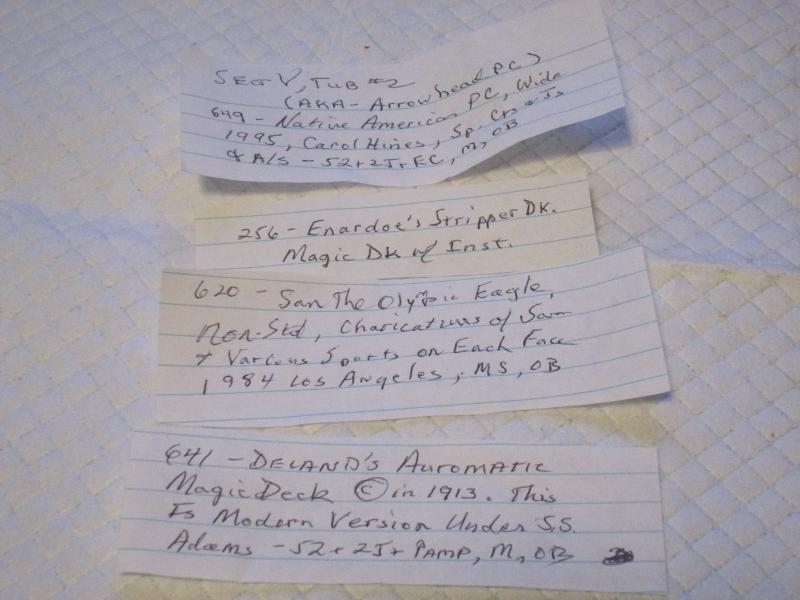 Sect V, Tub #2
(AKA - Arrowhead PC)
649 - Native American PC, Wide
1995, Carol Hines, Sp. Crts & Js
& A/S - 52+2J+EC, M, OB
256 - Enardoe's Stripper Dk.
Magic Dk w/ Inst.
620 - Sam The Olympic Eagle,
Non-Std, Charicatures of Sam
+ Various Sports on Each Face
1984 Los Angeles, MS, OB
641 - DELAND'S AUTOMATIC
Magic Deck © in 1913. This
Is Modern Version Under S.S.
Adams - 52+2J+ Pamp, M, OB